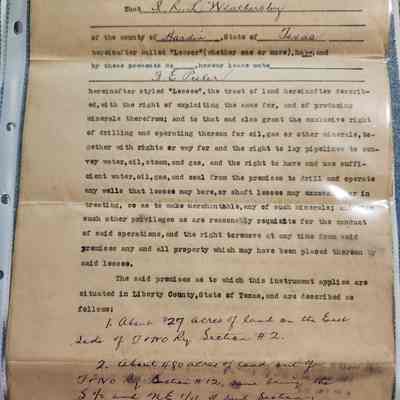 That I. R. L. Weathersby
of the county of Hardin, State of Texas
hereinafter called "Lessor"(whether one or more), have, and
by these presents do , hereby lease unto
F. E. Pieler
hereinafter styled "Lessee", the tract of land hereinafter describ-
ed, with the right of exploiting the same for, and of producing
minerals therefrom; and to that end also grant the exclusive right
of drilling and operating thereon for oil, gas or other minerals, to-
gether with rights or way for and the right to lay pipelines to con-
vey water, oil, steam, and gas, and the right to have and use suffi-
cient water, oil, gas, and coal from the premises to drill and operate
any wells that lessee may bore, or shaft lessee may
treating, so as to make merchantable, any of such minerals;
such other privileges as are reasonably requisite for the conduct
of said operations, and the right toremove at any time from said
premises any and all property which may have been placed thereon by
said lessee.
The said premises as to which this instrument applies are
situated in Liberty County, State of Texas, and are described as
follows;
1. About 27 acres of land on the East
Side of T & NO Ry. Section # 2.
2. About 480 acres of land, out of
T & NO Ry Section # 12, same being the
S ½ and N.E. ¼ of said Section,